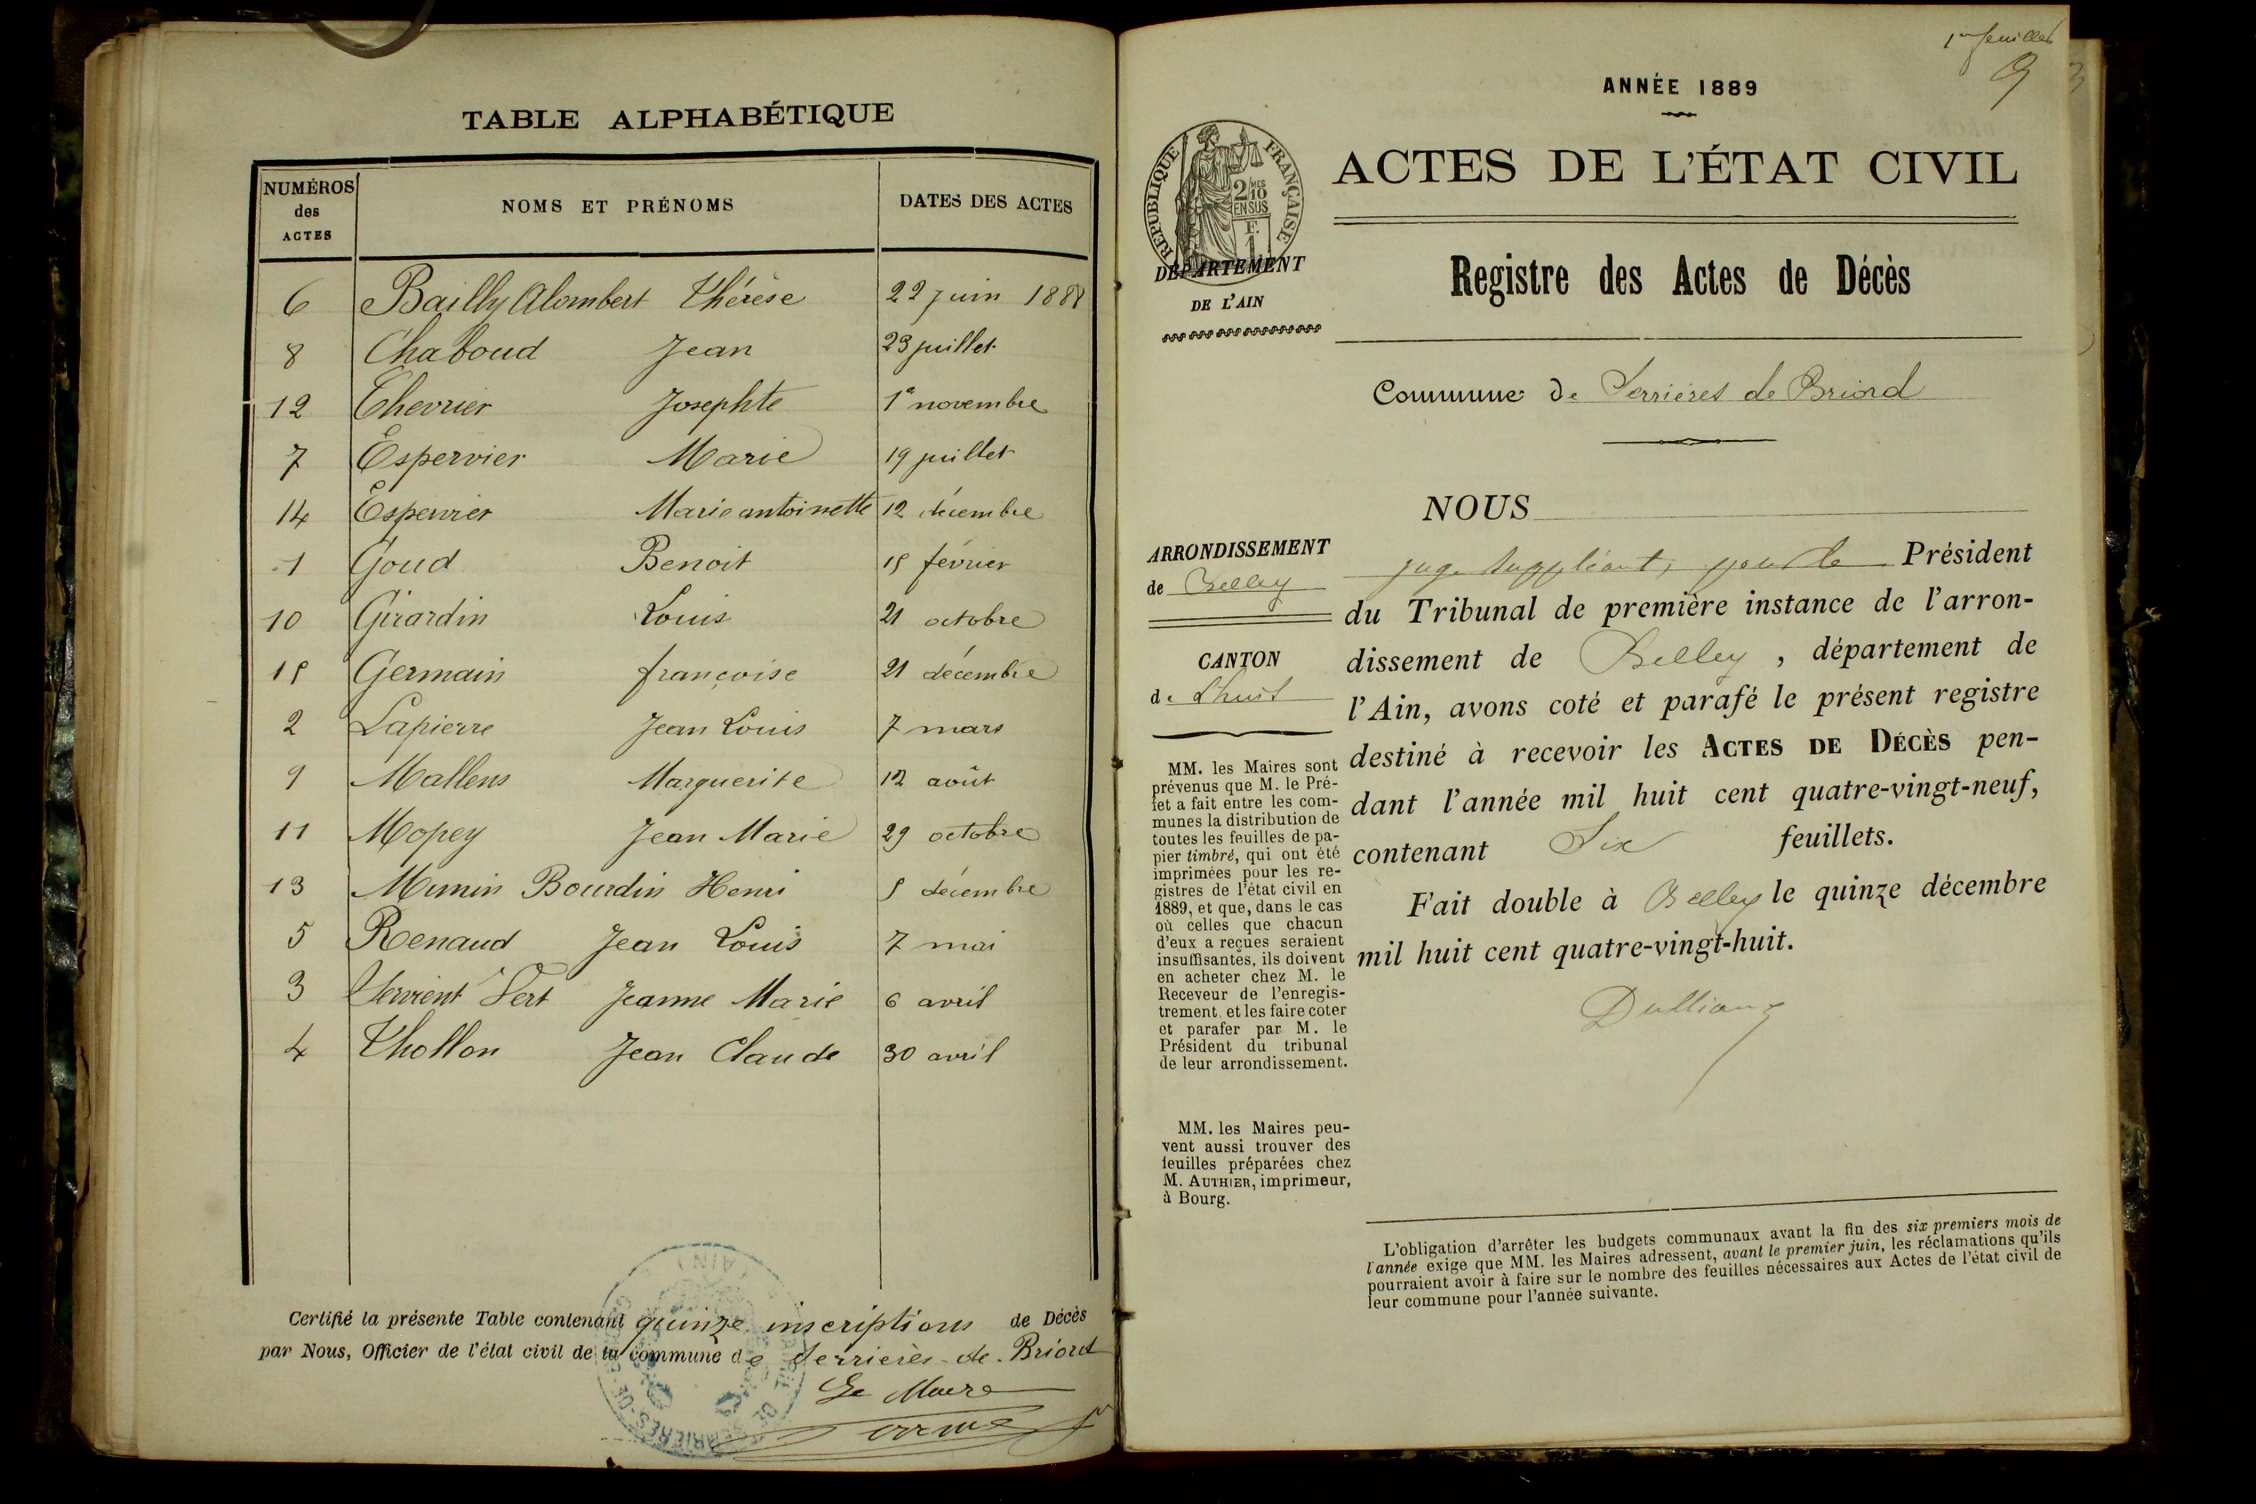 TABLE ALPHABÉTIQUE
NUMÉROS des ACTES
NOMS ET PRÉNOMS
DATES DES ACTES
6 Bailly Alombert Thérèse 22 juin 1888
8 Chaboud Jean 23 juillet
12 Chevrier Josephte 1er novembre
7 Espervier Marie 19 juillet
14 Espervier Marie antoinette 12 décembre
1 Goud Benoit 15 février
10 Girardin Louis 21 octobre
15 Germain françoise 21 décembre
2 Lapierre Jean Louis 7 mars
9 Mallens Marguerite 12 août
11 Mopey Jean Marie 29 octobre
13 Mumin Bourdin Henri 5 décembre
5 Renaud Jean Louis 7 mai
3 Servient Vert Jeanne Marie 6 avril
4 Thollon Jean Claude 30 avril
Certifié la présente Table contenant quinze inscriptions de Décès
par Nous, Officier de l'état civil de la commune de Serrières-de-Briord
Le Maire
1er feuillet
9
ANNÉE 1889
RÉPUBLIQUE FRANÇAISE
2/10 MES
EN SUS
F.
1
ACTES DE L'ÉTAT CIVIL
DÉPARTEMENT
DE L'AIN
Registre des Actes de Décès
Commune de Serrières de Briord
ARRONDISSEMENT
de Belley
CANTON
de Lhuis
MM. les Maires sont
prévenus que M. le Pré-
fet a fait entre les com-
munes la distribution de
toutes les feuilles de pa-
pier timbré, qui ont été
imprimées pour les re-
gistres de l'état civil en
1889, et que, dans le cas
où celles que chacun
d'eux a reçues seraient
insuffisantes, ils doivent
en acheter chez M. le
Receveur de l'enregis-
trement, et les faire coter
et parafer par M. le
Président du tribunal
de leur arrondissement.
MM. les Maires peu-
vent aussi trouver des
feuilles préparées chez
M. AUTHIER, imprimeur,
à Bourg.
NOUS
juge suppléant, pour le Président
du Tribunal de première instance de l'arron-
dissement de Belley, département de
l'Ain, avons coté et parafé le présent registre
destiné à recevoir les ACTES DE DÉCÈS pen-
dant l'année mil huit cent quatre-vingt-neuf,
contenant Six feuillets.
Fait double à Belley le quinze décembre
mil huit cent quatre-vingt-huit.
L'obligation d'arrêter les budgets communaux avant la fin des six premiers mois de
l'année exige que MM. les Maires adressent, avant le premier juin, les réclamations qu'ils
pourraient avoir à faire sur le nombre des feuilles nécessaires aux Actes de l'état civil de
leur commune pour l'année suivante.